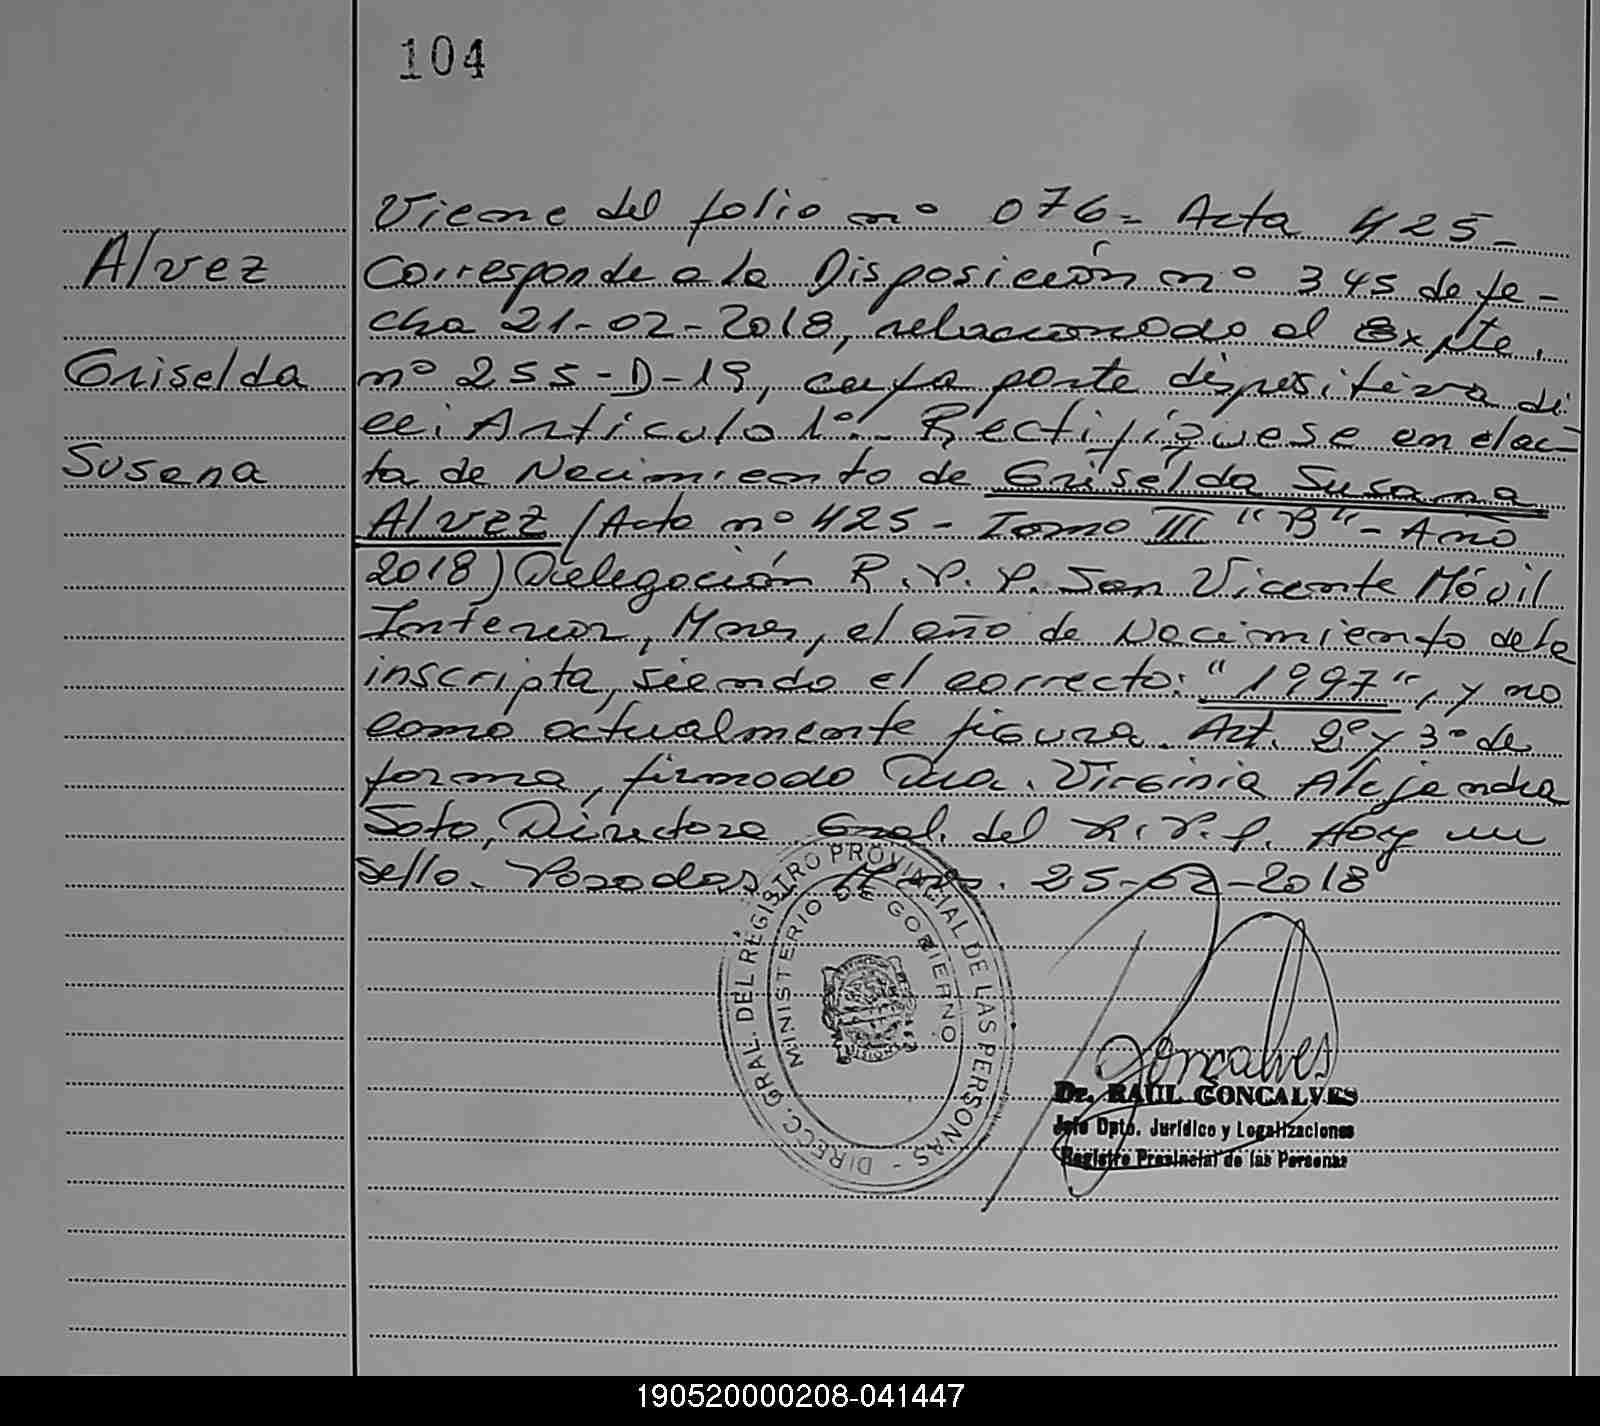 104
Viene del folio nº 076- Acta 425-
Alvez
Corresponde a la Disposición nº 345 de fe-
cha 21-02-2018, relacionado al Expte.
Griselda
nº 255-D-19, cuya parte dispositiva di
ce: Artículo 1º- Rectifíquese en el ac-
Susana
ta de Nacimiento de Griselda Susana
Alvez (Acta nº 425- Tomo III "B"- Año
2018) Delegación R.P.P. San Vicente Móvil
Interior, Mnes, el año de Nacimiento de la
inscripta, siendo el correcto: "1997", y no
como actualmente figura. Art. 2º y 3º de
forma, firmado Dra. Virginia Alejandra
Soto, Directora Gral. del R.P.P. Hay un
sello. Posadas, Mnes. 25-02-2018
DIRECC. GRAL. DEL REGISTRO PROVINCIAL DE LAS PERSONAS -
MINISTERIO DE GOBIERNO
Goncalves
Dr. RAUL GONCALVES
Jefe Dpto. Jurídico y Legalizaciones
Registro Provincial de las Personas
190520000208-041447